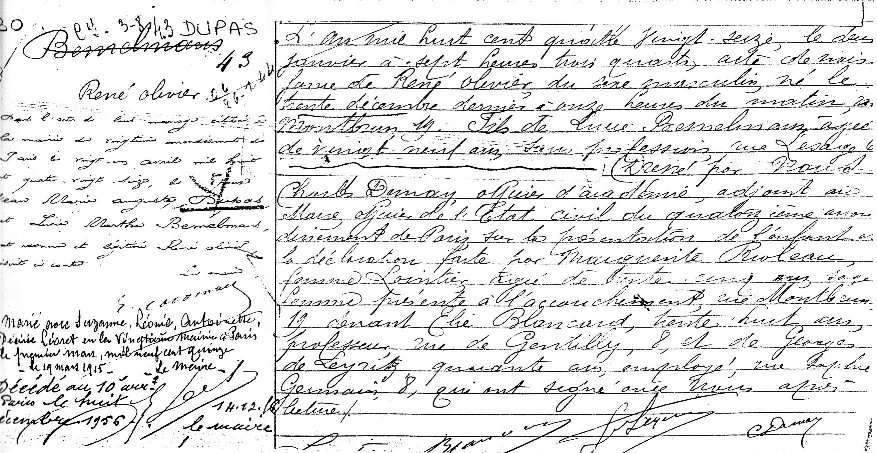 30
Cn. 3-8 43 DUPAS
Bemelmans
43
René Olivier
Dans l'acte de
la mairie du vingtième arrondissement de
Paris le vingt un avril mil huit
cent quatre vingt seize, de
Marie auguste Dupas
et Lucie Marthe Bemelmans,
ont reconnu et légitimé René Olivier
inscrit ci contre.
Le maire
Marié avec Suzanne, Léonie, Antoinette,
Désirée Liéret en la Vingtième Mairie à Paris
le premier mars, mil neuf cent quinze
le 19 mars 1915 Le Maire
Décédé au 10è arrdt
Paris le huit
décembre 1956
14.12.
le maire
L'an mil huit cent quatre vingt-seize, le deux
janvier à sept heures trois quarts, acte de nais
sance de René Olivier du sexe masculin, né le
trente décembre dernier à onze heures du matin,
Montbrun 19 fils de Lucie Bemelmans, agée
de vingt neuf ans, sans profession, rue
Dressé par Nous
Charles Dumay officier d'académie, adjoint au
Maire, officier de l'Etat civil du quatorzième arron
dissement de Paris, sur la présentation de l'enfant et
la déclaration faite par Marguerite
femme Lointier, agée de trente cinq ans, sage
femme présente à l'accouchement, rue Montbrun
19 devant Elie Blancard, trente huit ans,
professeur, rue de Gentilly, 8, et de Georges
de Leyritz, quarante ans, employé, rue Sophie
Germain, 8, qui ont signé avec nous après
lecture/.